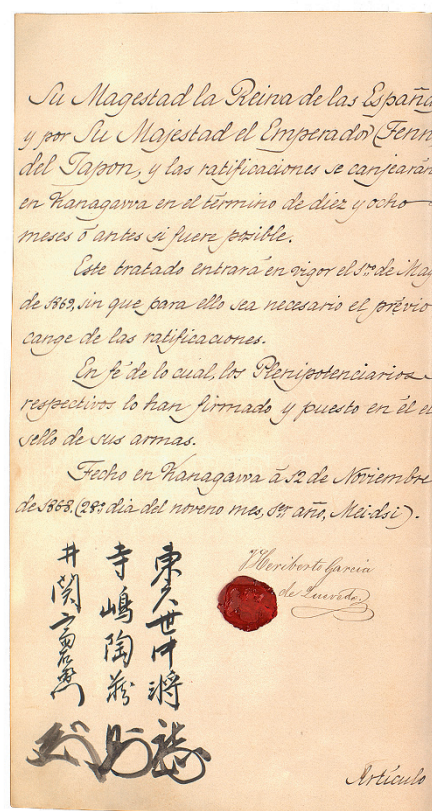 Su Magestad la Reina de las España
y por Su Majestad el Emperador (Tenn
del Japon, y las ratificaciones se canjearán
en Kanagawa en el término de diez y ocho
meses ó antes si fuere posible.
Este tratado entrará en vigor el 1º de May
de 1869, sin que para ello sea necesario el prévio
cange de las ratificaciones.
En fé de lo cual, los Plenipotenciarios
respectivos lo han firmado y puesto en él el
sello de sus armas.
Fecho en Kanagawa á 12 de Noviembre
de 1868. (28º dia del noveno mes, 1er año, Mei-dsi).
Heriberto Garcia
de Quevedo.
東久世中将
寺嶋陶蔵
井関斎右衛門
Artículo